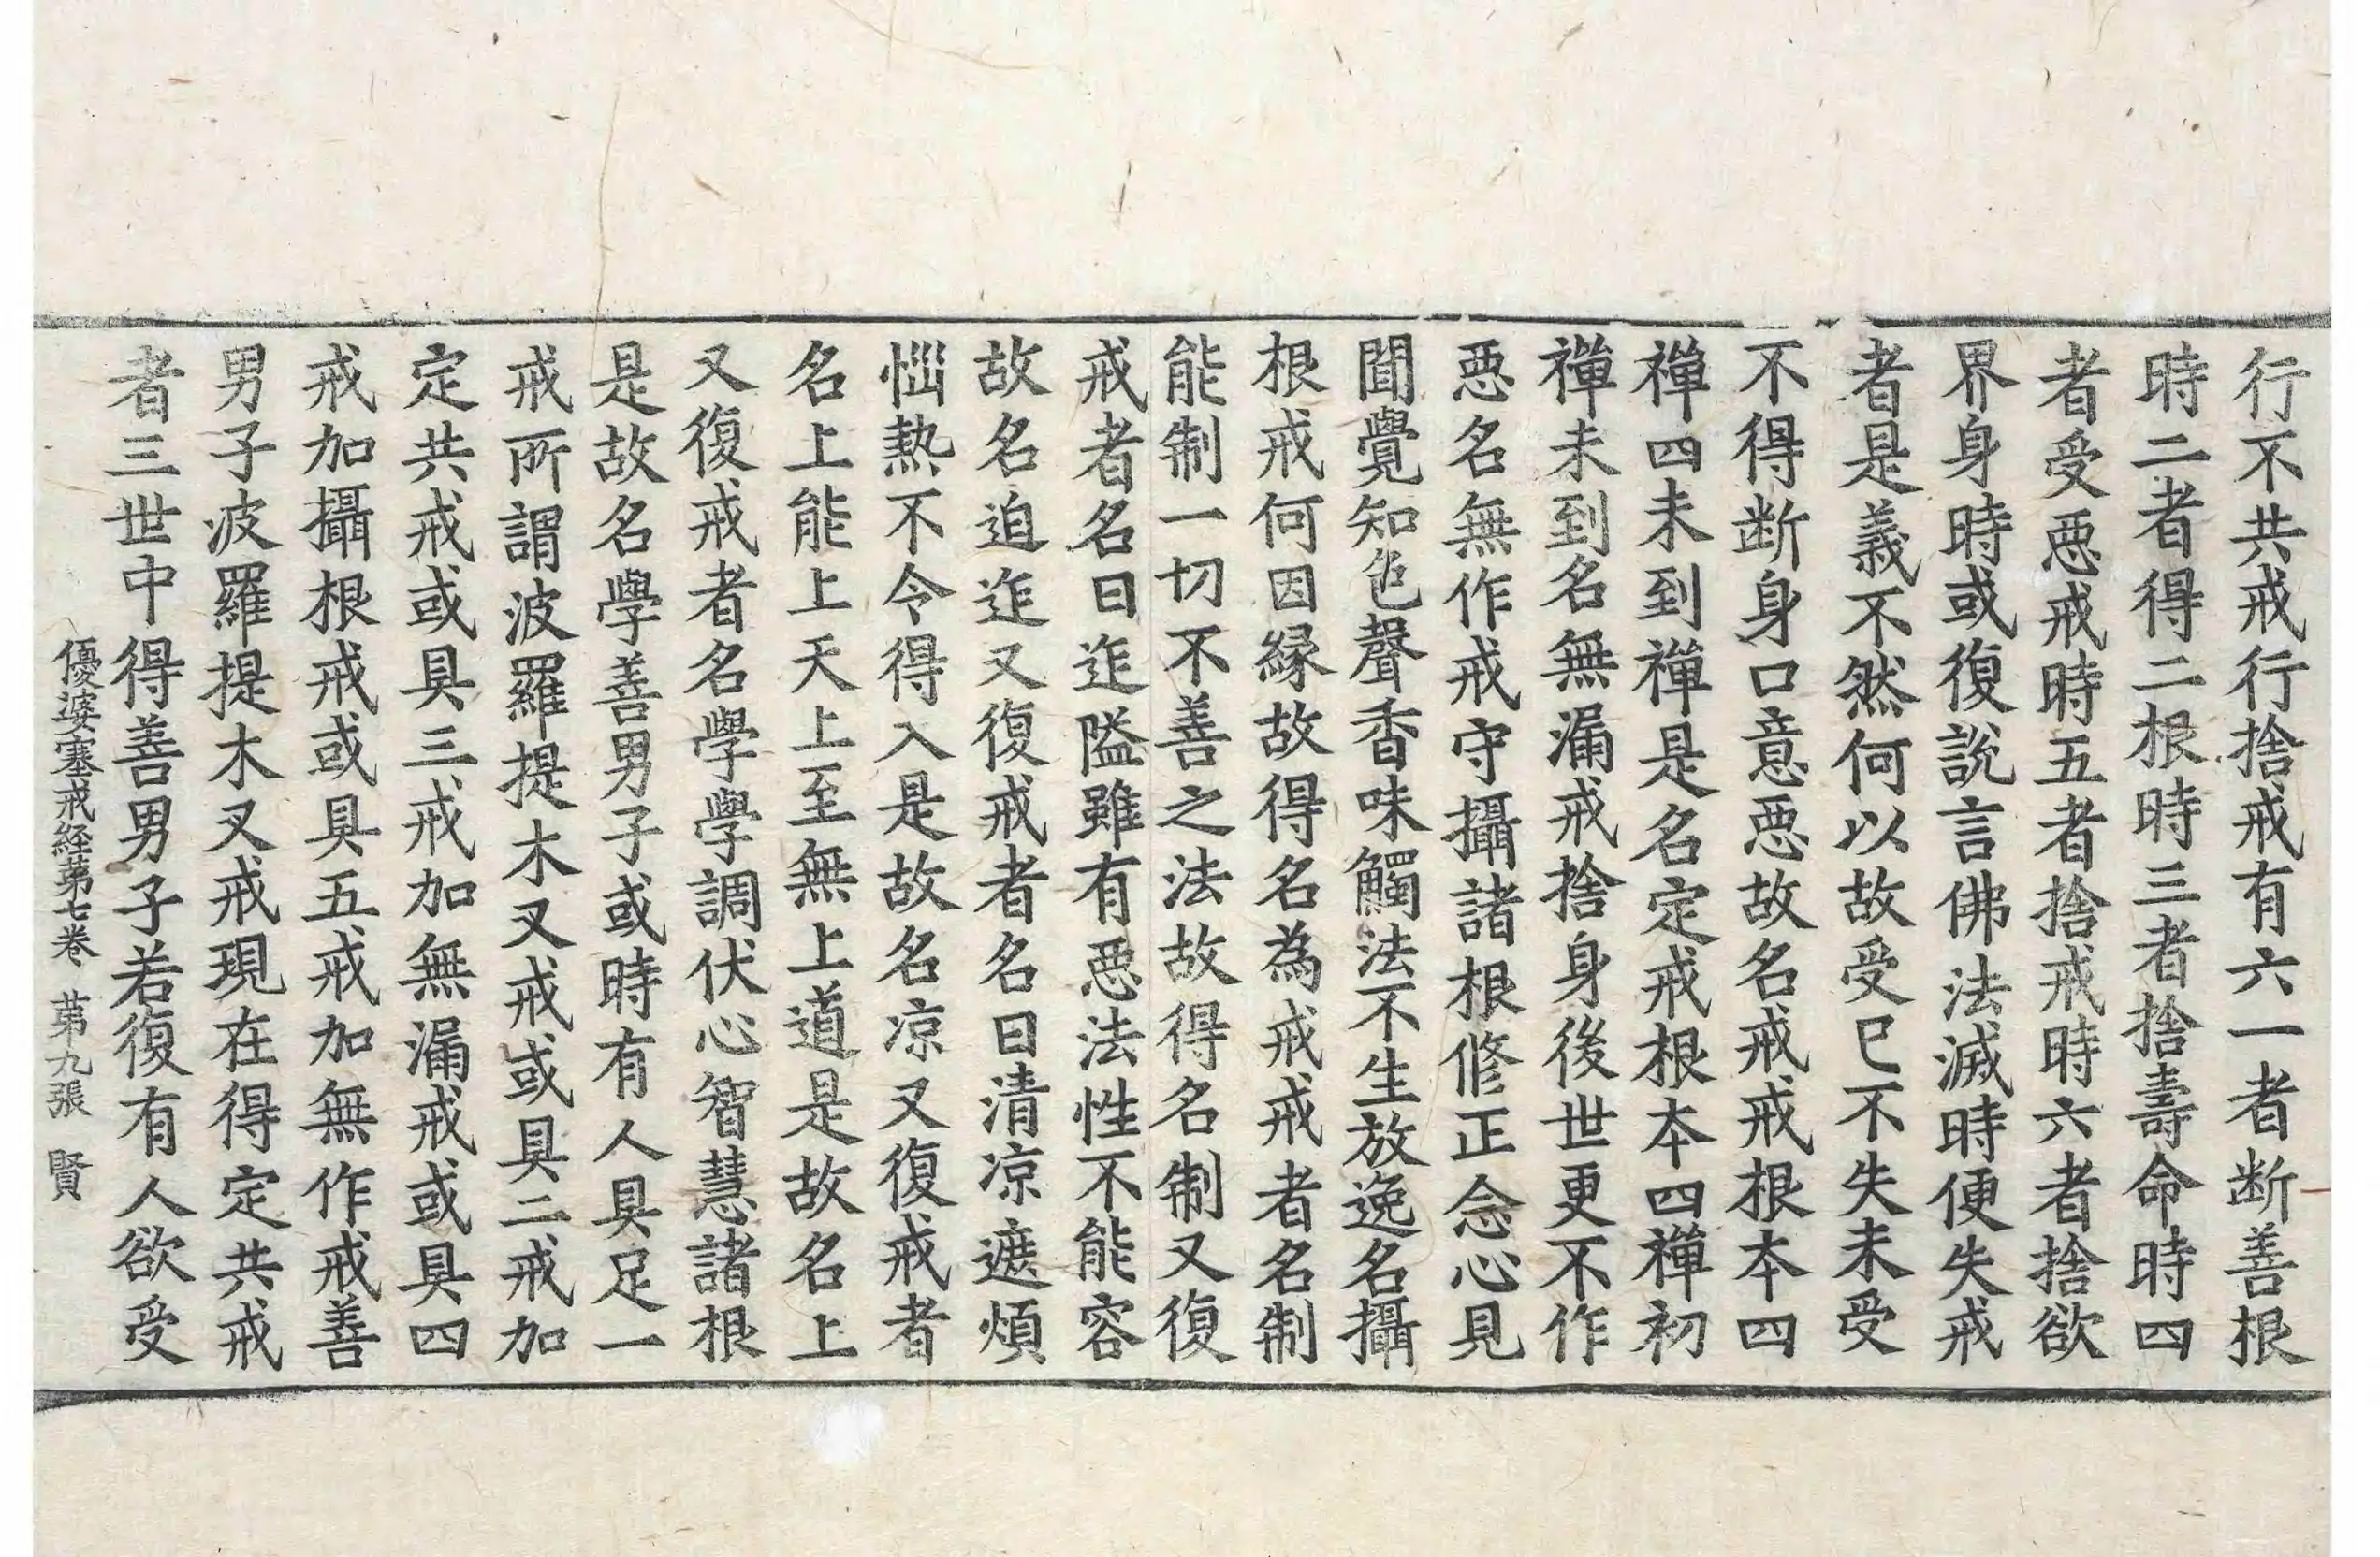 行不共戒行捨戒有六一者断善根
時二者得二根時三者捨壽命時四
者受悪戒時五者捨戒時六者捨欲
界身時或復說言佛法滅時便失戒
者是義不然何以故受已不失未受
不得断身口意悪故名戒戒根本四
禪四未到禪是名定戒根本四禪初
禪未到名無漏戒捨身後世更不作
悪名無作戒守攝諸根修正念心見
聞覺知色聲香味觸法不生放逸名攝
根戒何因縁故得名為戒戒者名制
能制一切不善之法故得名制又復
戒者名曰迮隘雖有悪法性不能容
故名迫迮又復戒者名曰清凉遮煩
惱熱不令得入是故名凉又復戒者
名上能上天上至無上道是故名上
又復戒者名學學調伏心智慧諸根
是故名學善男子或時有人具足一
戒所謂波羅提木叉戒或具二戒加
定共戒或具三戒加無漏戒或具四
戒加攝根戒或具五戒加無作戒善
男子波羅提木叉戒現在得定共戒
者三世中得善男子若復有人欲受
優婆塞戒経苐七卷 苐九張 賢